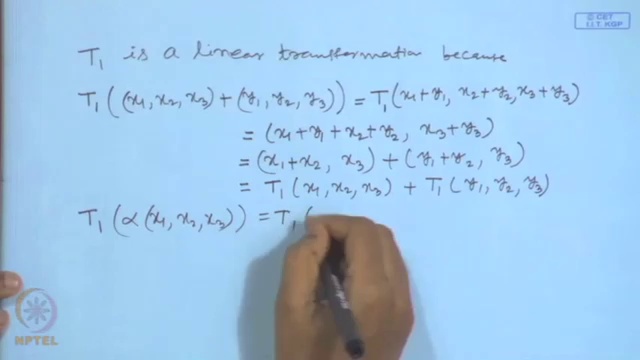 © CET
I.I.T. KGP
T₁ is a linear transformation because
T₁((x₁, x₂, x₃) + (y₁, y₂, y₃)) = T₁(x₁+y₁, x₂+y₂, x₃+y₃)
= (x₁+y₁+x₂+y₂, x₃+y₃)
= (x₁+x₂, x₃) + (y₁+y₂, y₃)
= T₁(x₁, x₂, x₃) + T₁(y₁, y₂, y₃)
T₁(α(x₁, x₂, x₃)) = T₁(
NPTEL